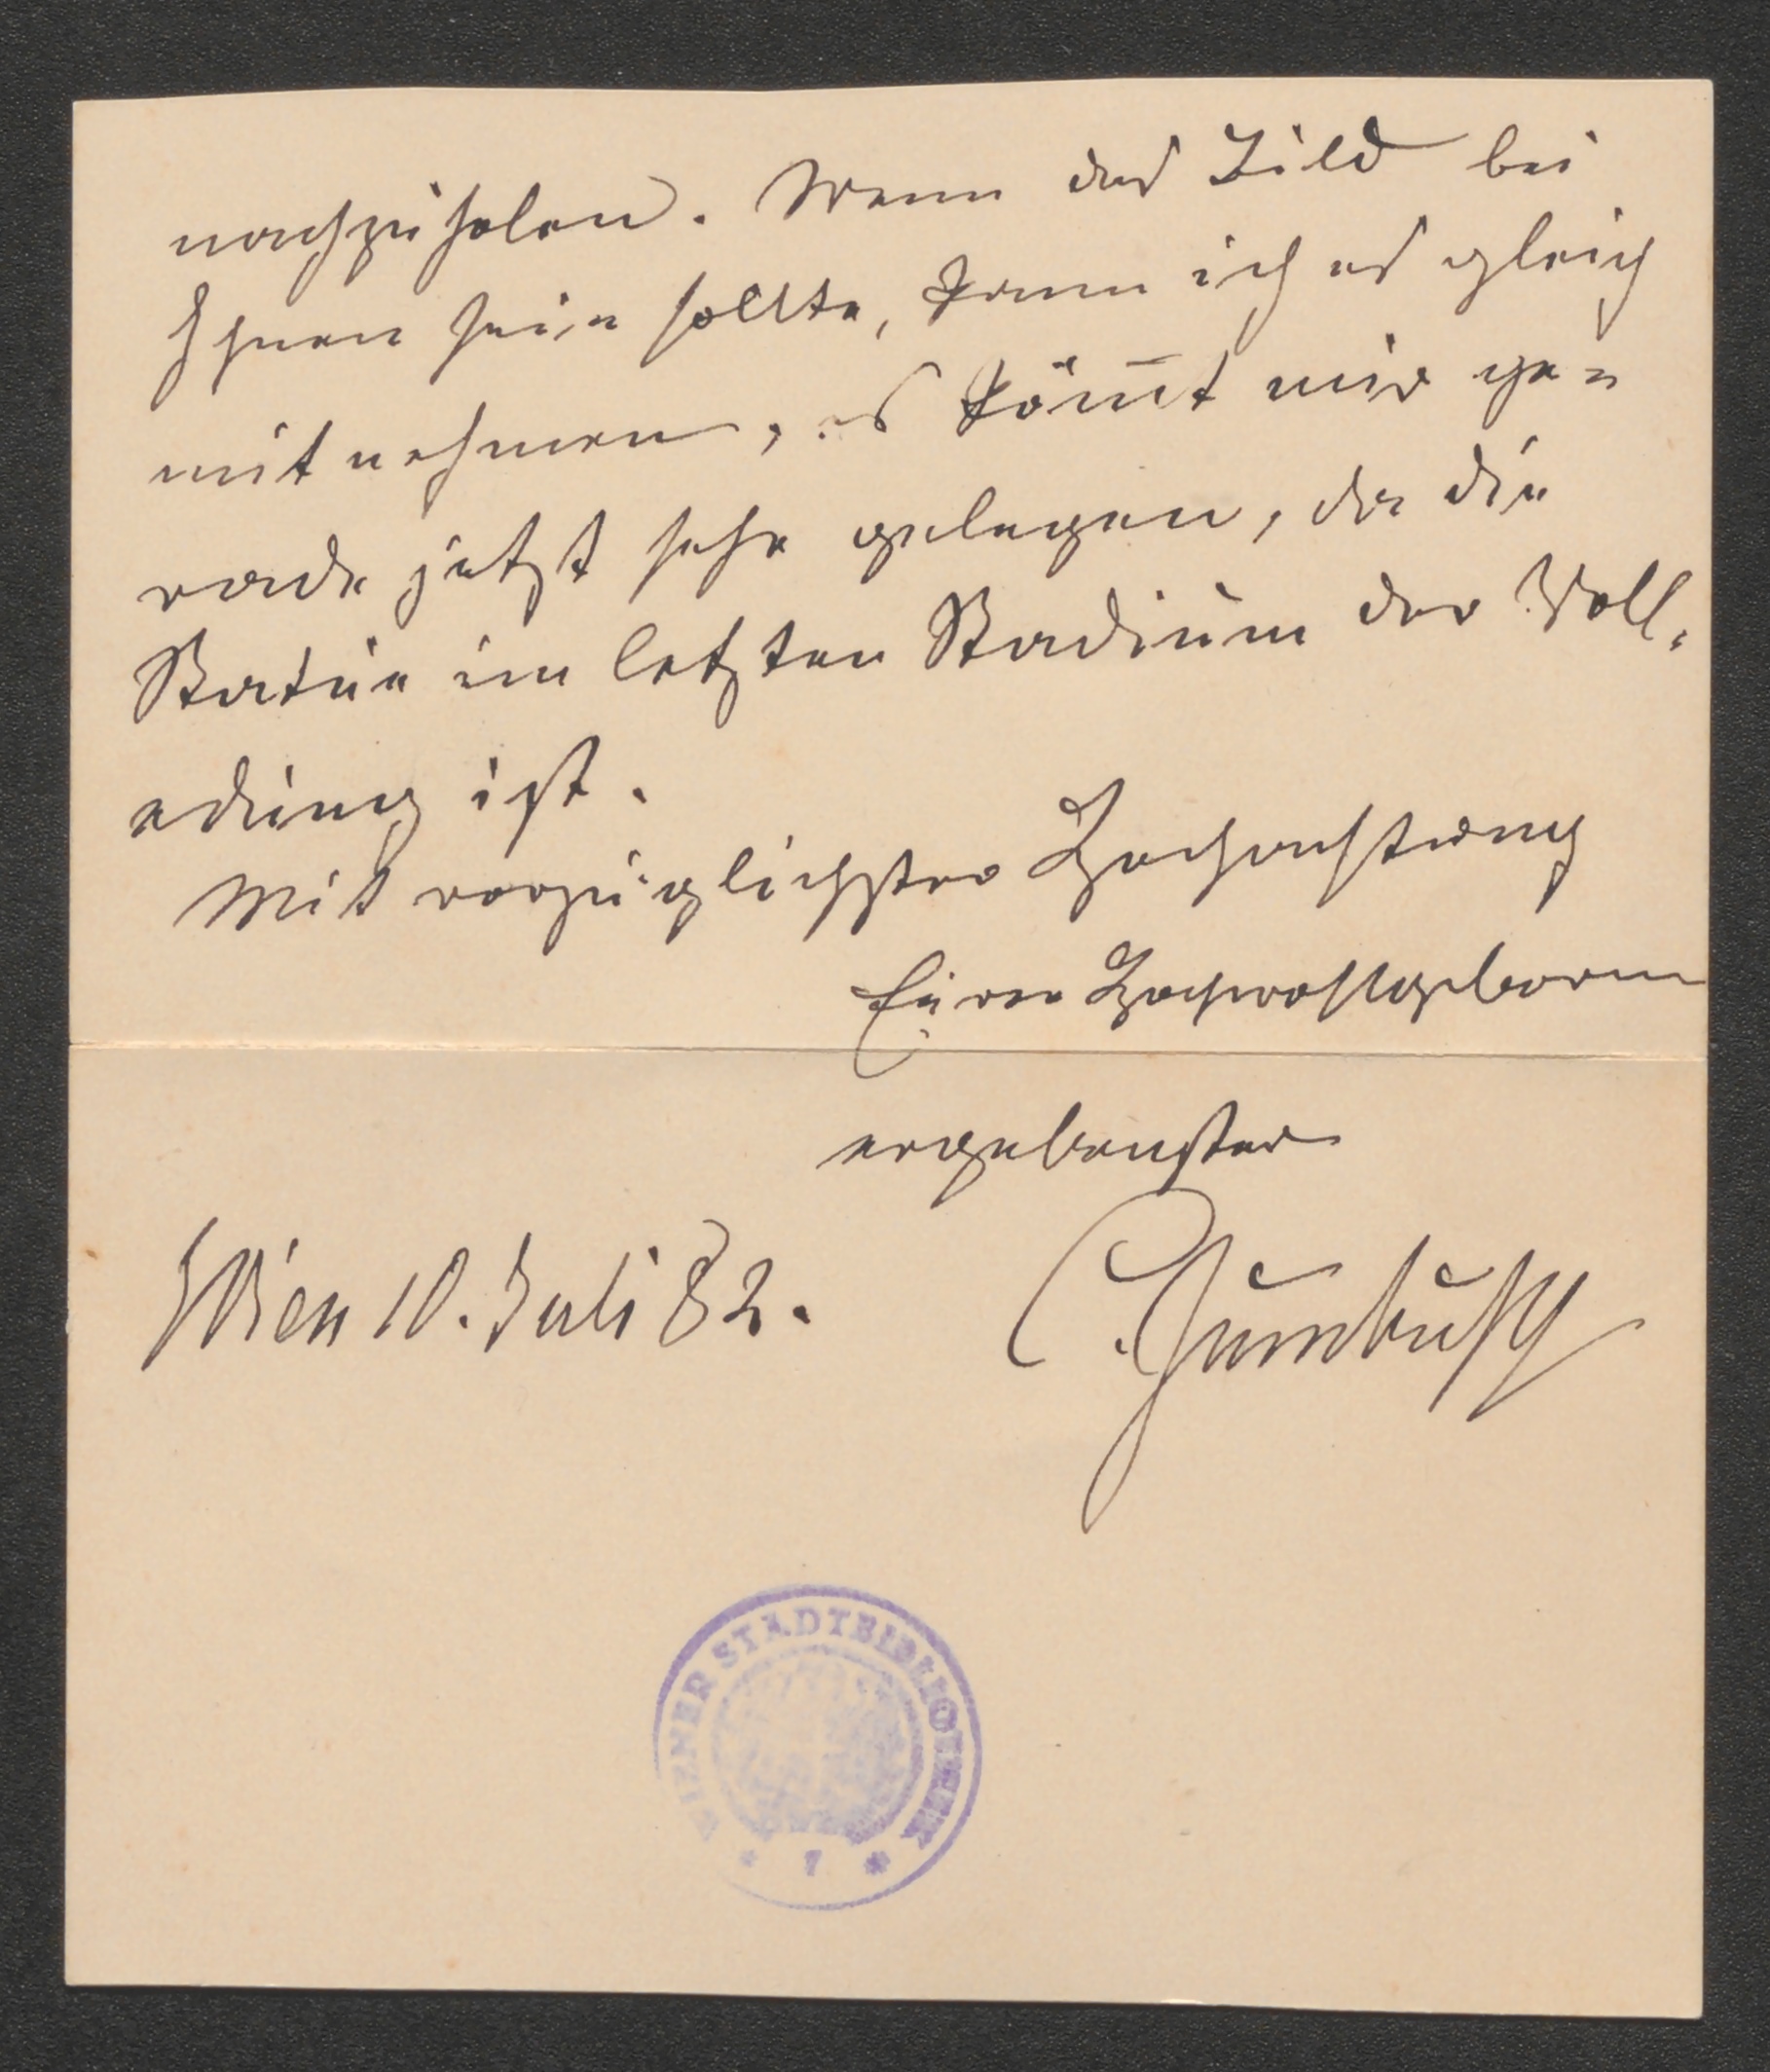 nachzuholen. Wenn das Bild bei
Ihnen sein sollte, kann ich es gleich
mit nehmen, es kömt mir ge=
rade jetzt sehr gelegen, da die
Statue im letzten Stadium der Voll,
edung ist.
Mit vorzüglichster Hochachtung
Euer Hochwohlgeborn
ergebenster
Wien 10. Juli 82. CZumbusch
WIENER STADTBIBLIOTHEK
* 7 *